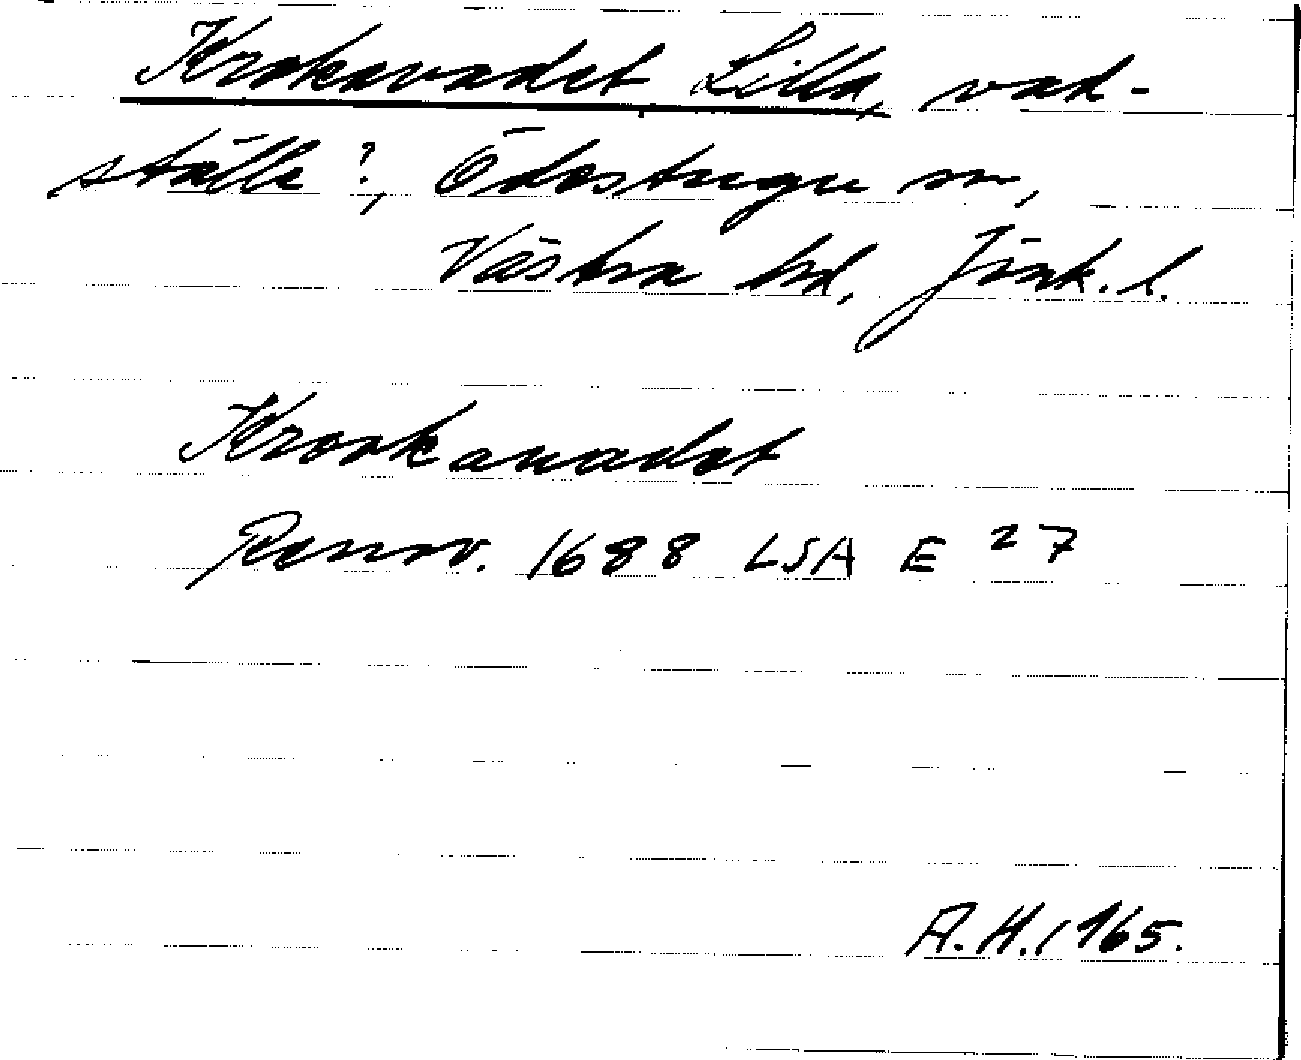 Krokavadet Lilla, vad-
ställe?, Ödestugu sn,
Västra hd, Jönk. l.
Krookawadet
Renov. 1688 LSA E 27
A.H. 1965.